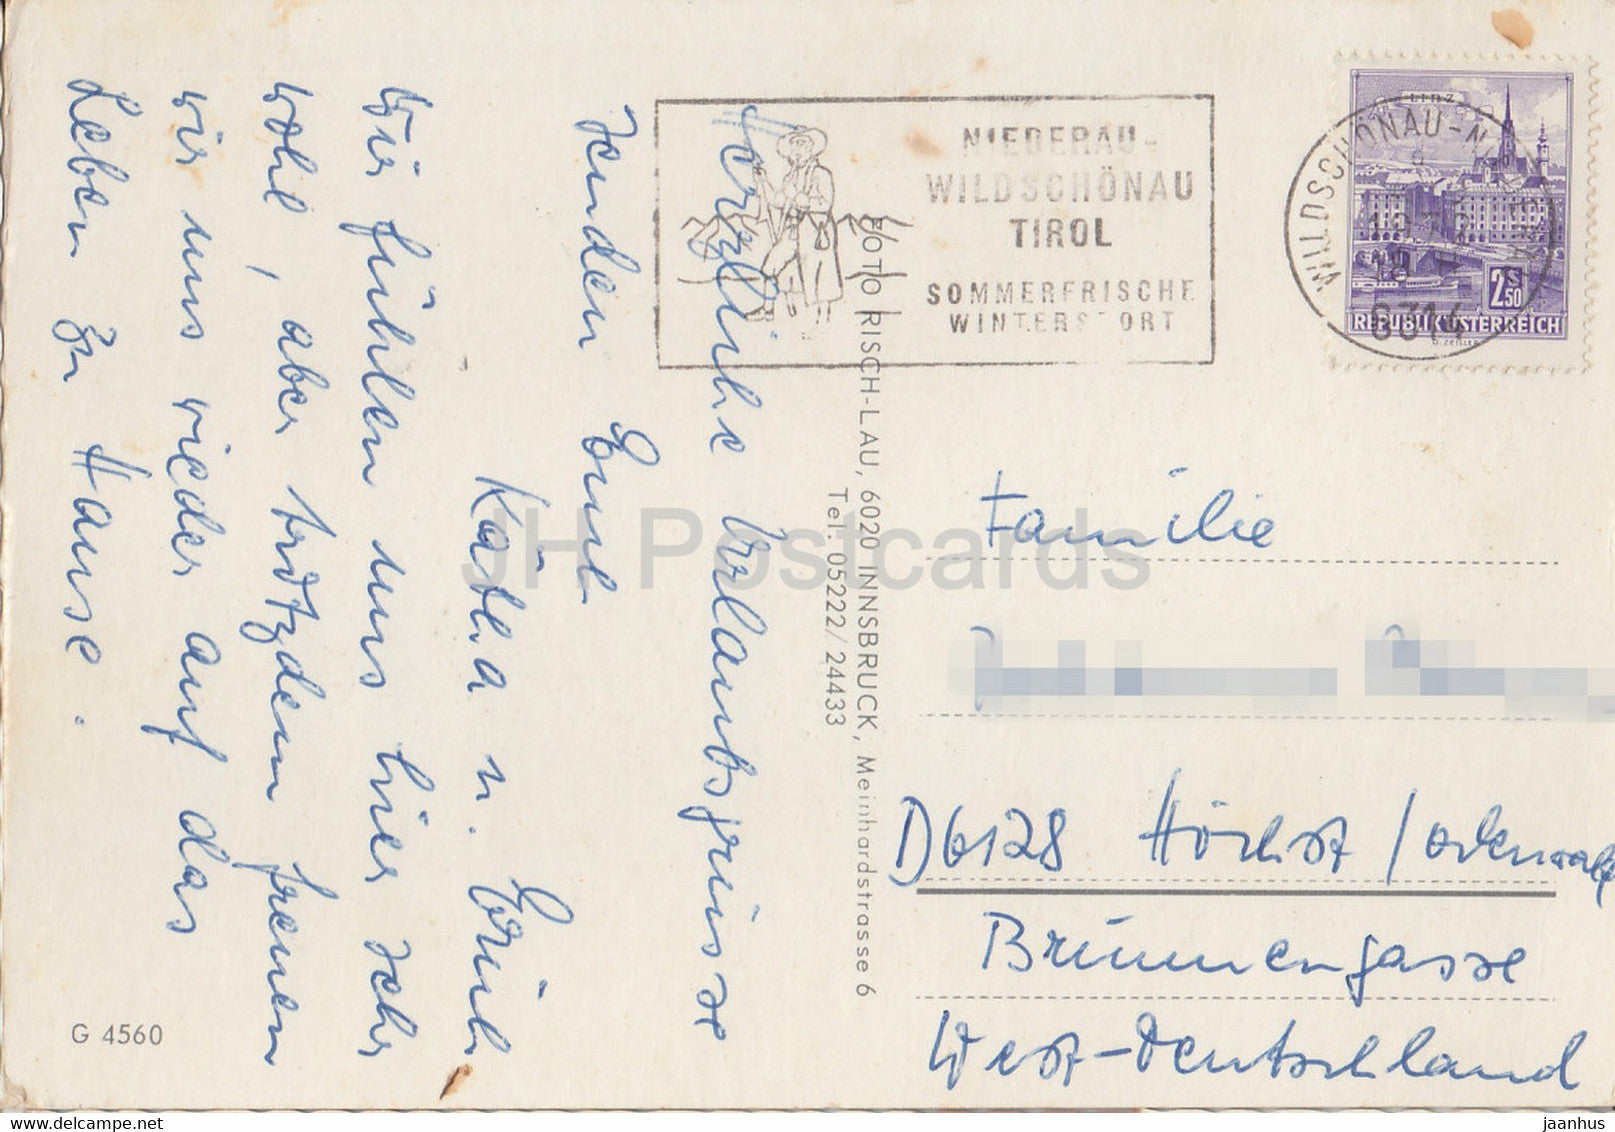 Herzliche Urlaubsgrüsse
senden Euch
Käthe u. Erich
Wir fühlen uns hier sehr
wohl, aber trotzdem freuen
wir uns wieder auf das
Leben zu Hause.
NIEDERAU-
WILDSCHÖNAU
TIROL
SOMMERFRISCHE
WINTERSPORT
WILDSCHÖNAU-NIEDERAU
6314
LINZ
2.50 S
REPUBLIK ÖSTERREICH
O. ZEILLER
FOTO RISCH-LAU, 6020 INNSBRUCK, Meinhardstrasse 6
Tel. 05222/24433
Familie
D6128 Höchst/Odenwald
Brunnengasse
West-Deutschland
G 4560
JH Postcards
www.delcampe.net
jaanhus